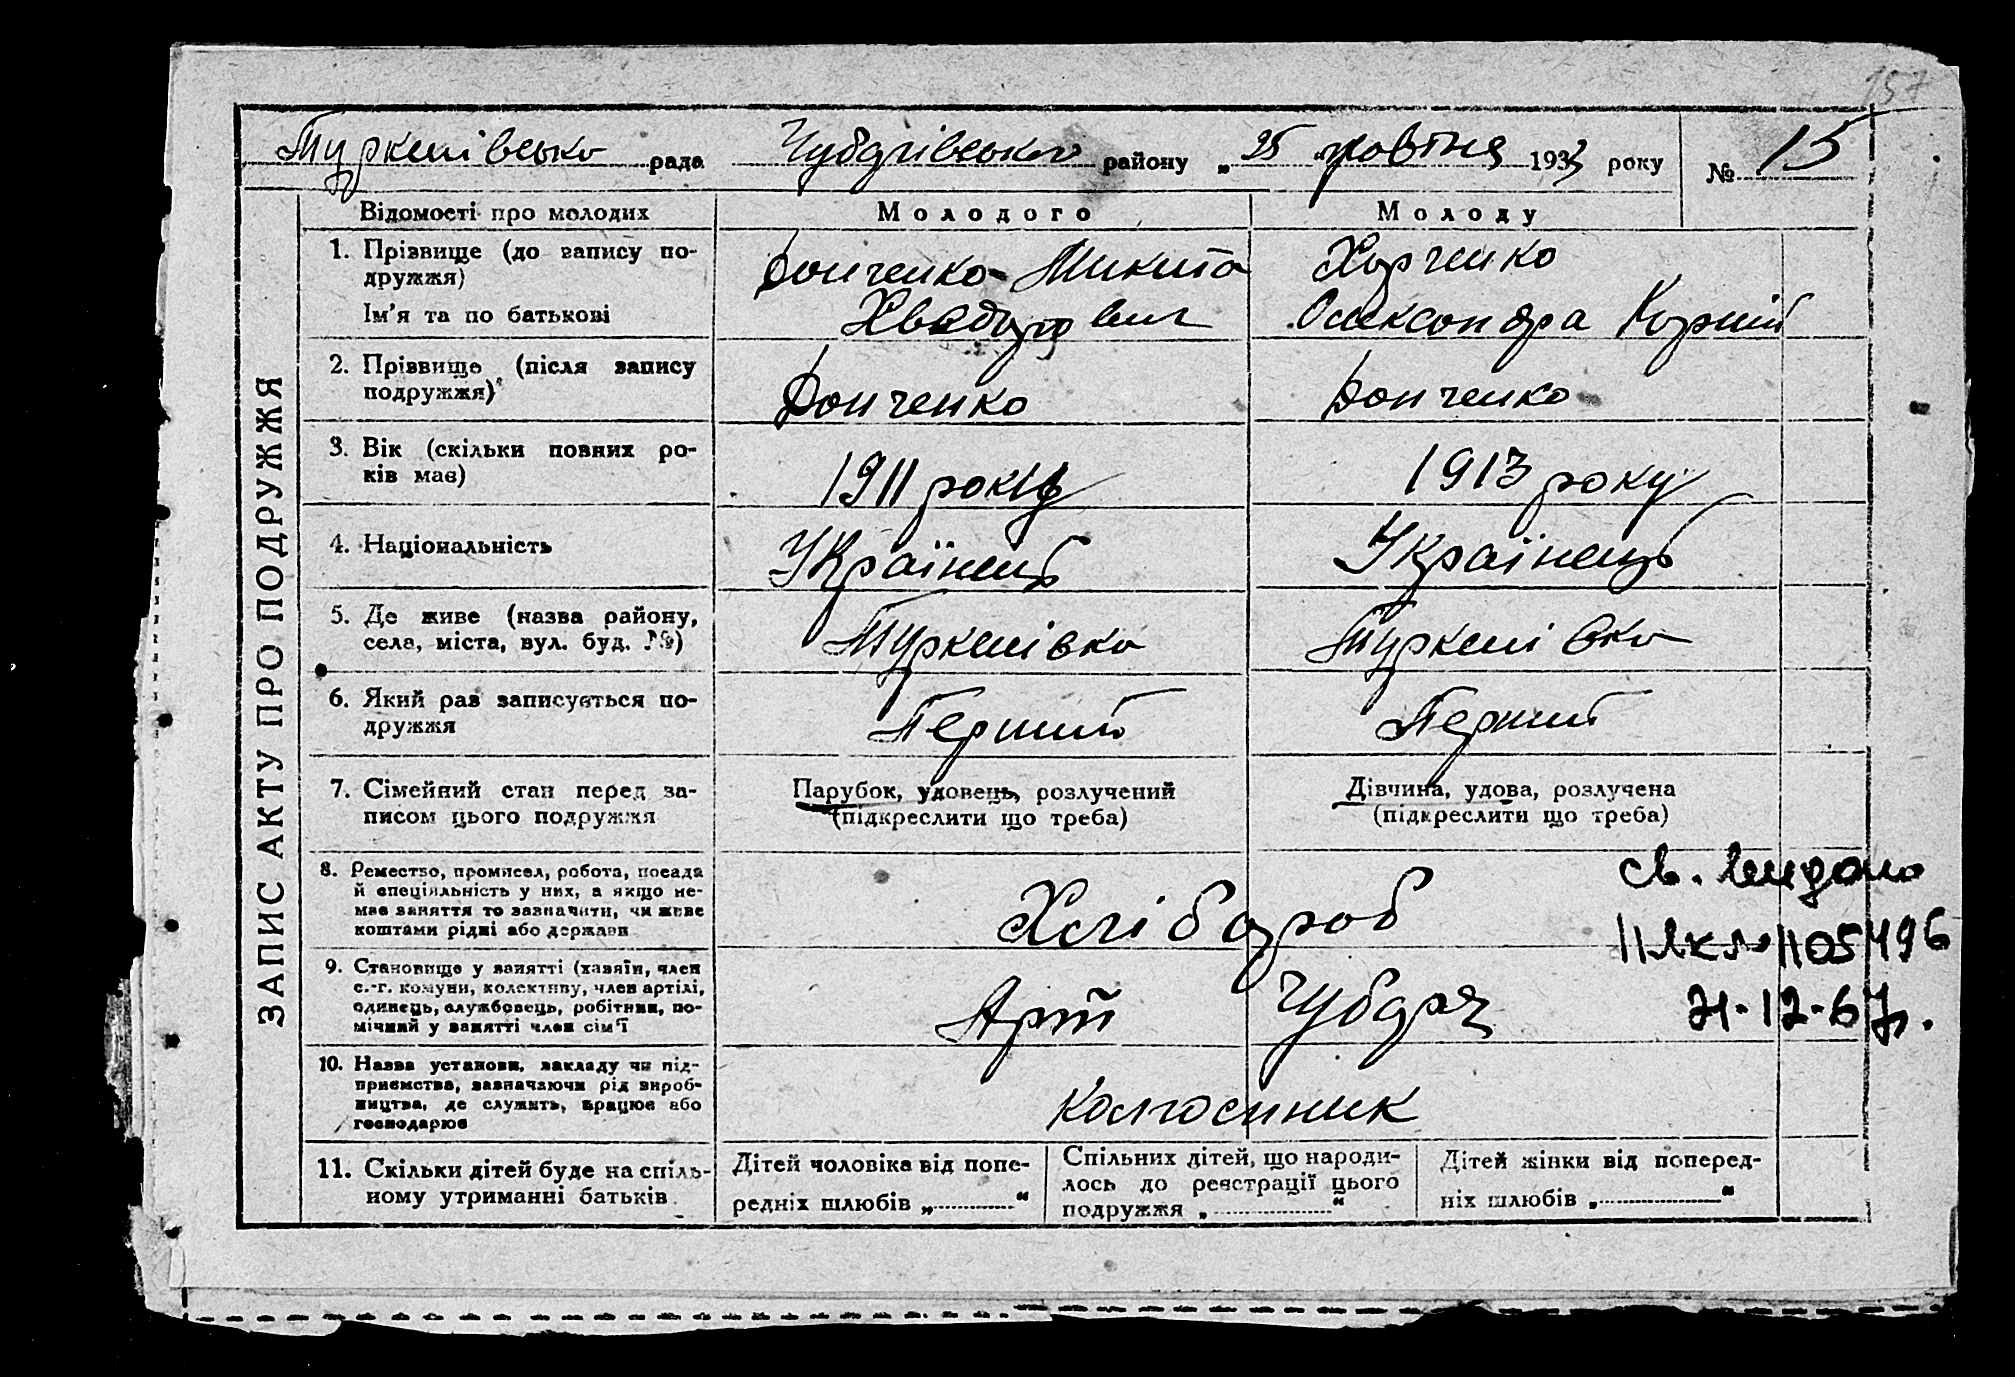 157
Туркенівсько рада Чубарівського району „ 25 " жовтня 1933 року № 15
ЗАПИС АКТУ ПРО ПОДРУЖЖЯ
Відомості про молодих
Молодого
Молоду
1. Прізвище (до запису по-
дружжя)
Ім'я та по батькові
Донченко Микита
Хведорович
Харченко
Олександра Корній
2. Прізвище (після запису
подружжя)
Донченко
Донченко
3. Вік (скільки повних ро-
ків має)
1911 року
1913 року
4. Національність
Українець
Українець
5. Де живе (назва району,
села, міста, вул. буд. №)
Туркенівка
Туркенівка
6. Який раз записується по-
дружжя
Перший
Перший
7. Сімейний стан перед за-
писом цього подружжя
Парубок, удовець, розлучений
(підкреслити що треба)
Дівчина, удова, розлучена
(підкреслити що треба)
8. Ремество, промисел, робота, посада
й спеціяльність у них, а якщо не-
має заняття то зазначити, чи живе
коштами рідні або держави
Хлібороб
9. Становище у занятті (хазяїн, член
с.-г. комуни, колективу, член артілі,
одинець, службовець, робітник, по-
мічний у занятті член сім'ї
Арт Чубаря
10. Назва установи, закладу чи під-
приємства, зазначаючи рід вироб-
ництва, де служить, працює або
господарює
колгоспник
св. выдано
1105496
21-12-67г.
11. Скільки дітей буде на спіль-
ному утриманні батьків
Дітей чоловіка від попе-
редніх шлюбів „ “
Спільних дітей, що народи-
лось до реєстрації цього
подружжя „ “
Дітей жінки від поперед-
ніх шлюбів „ “